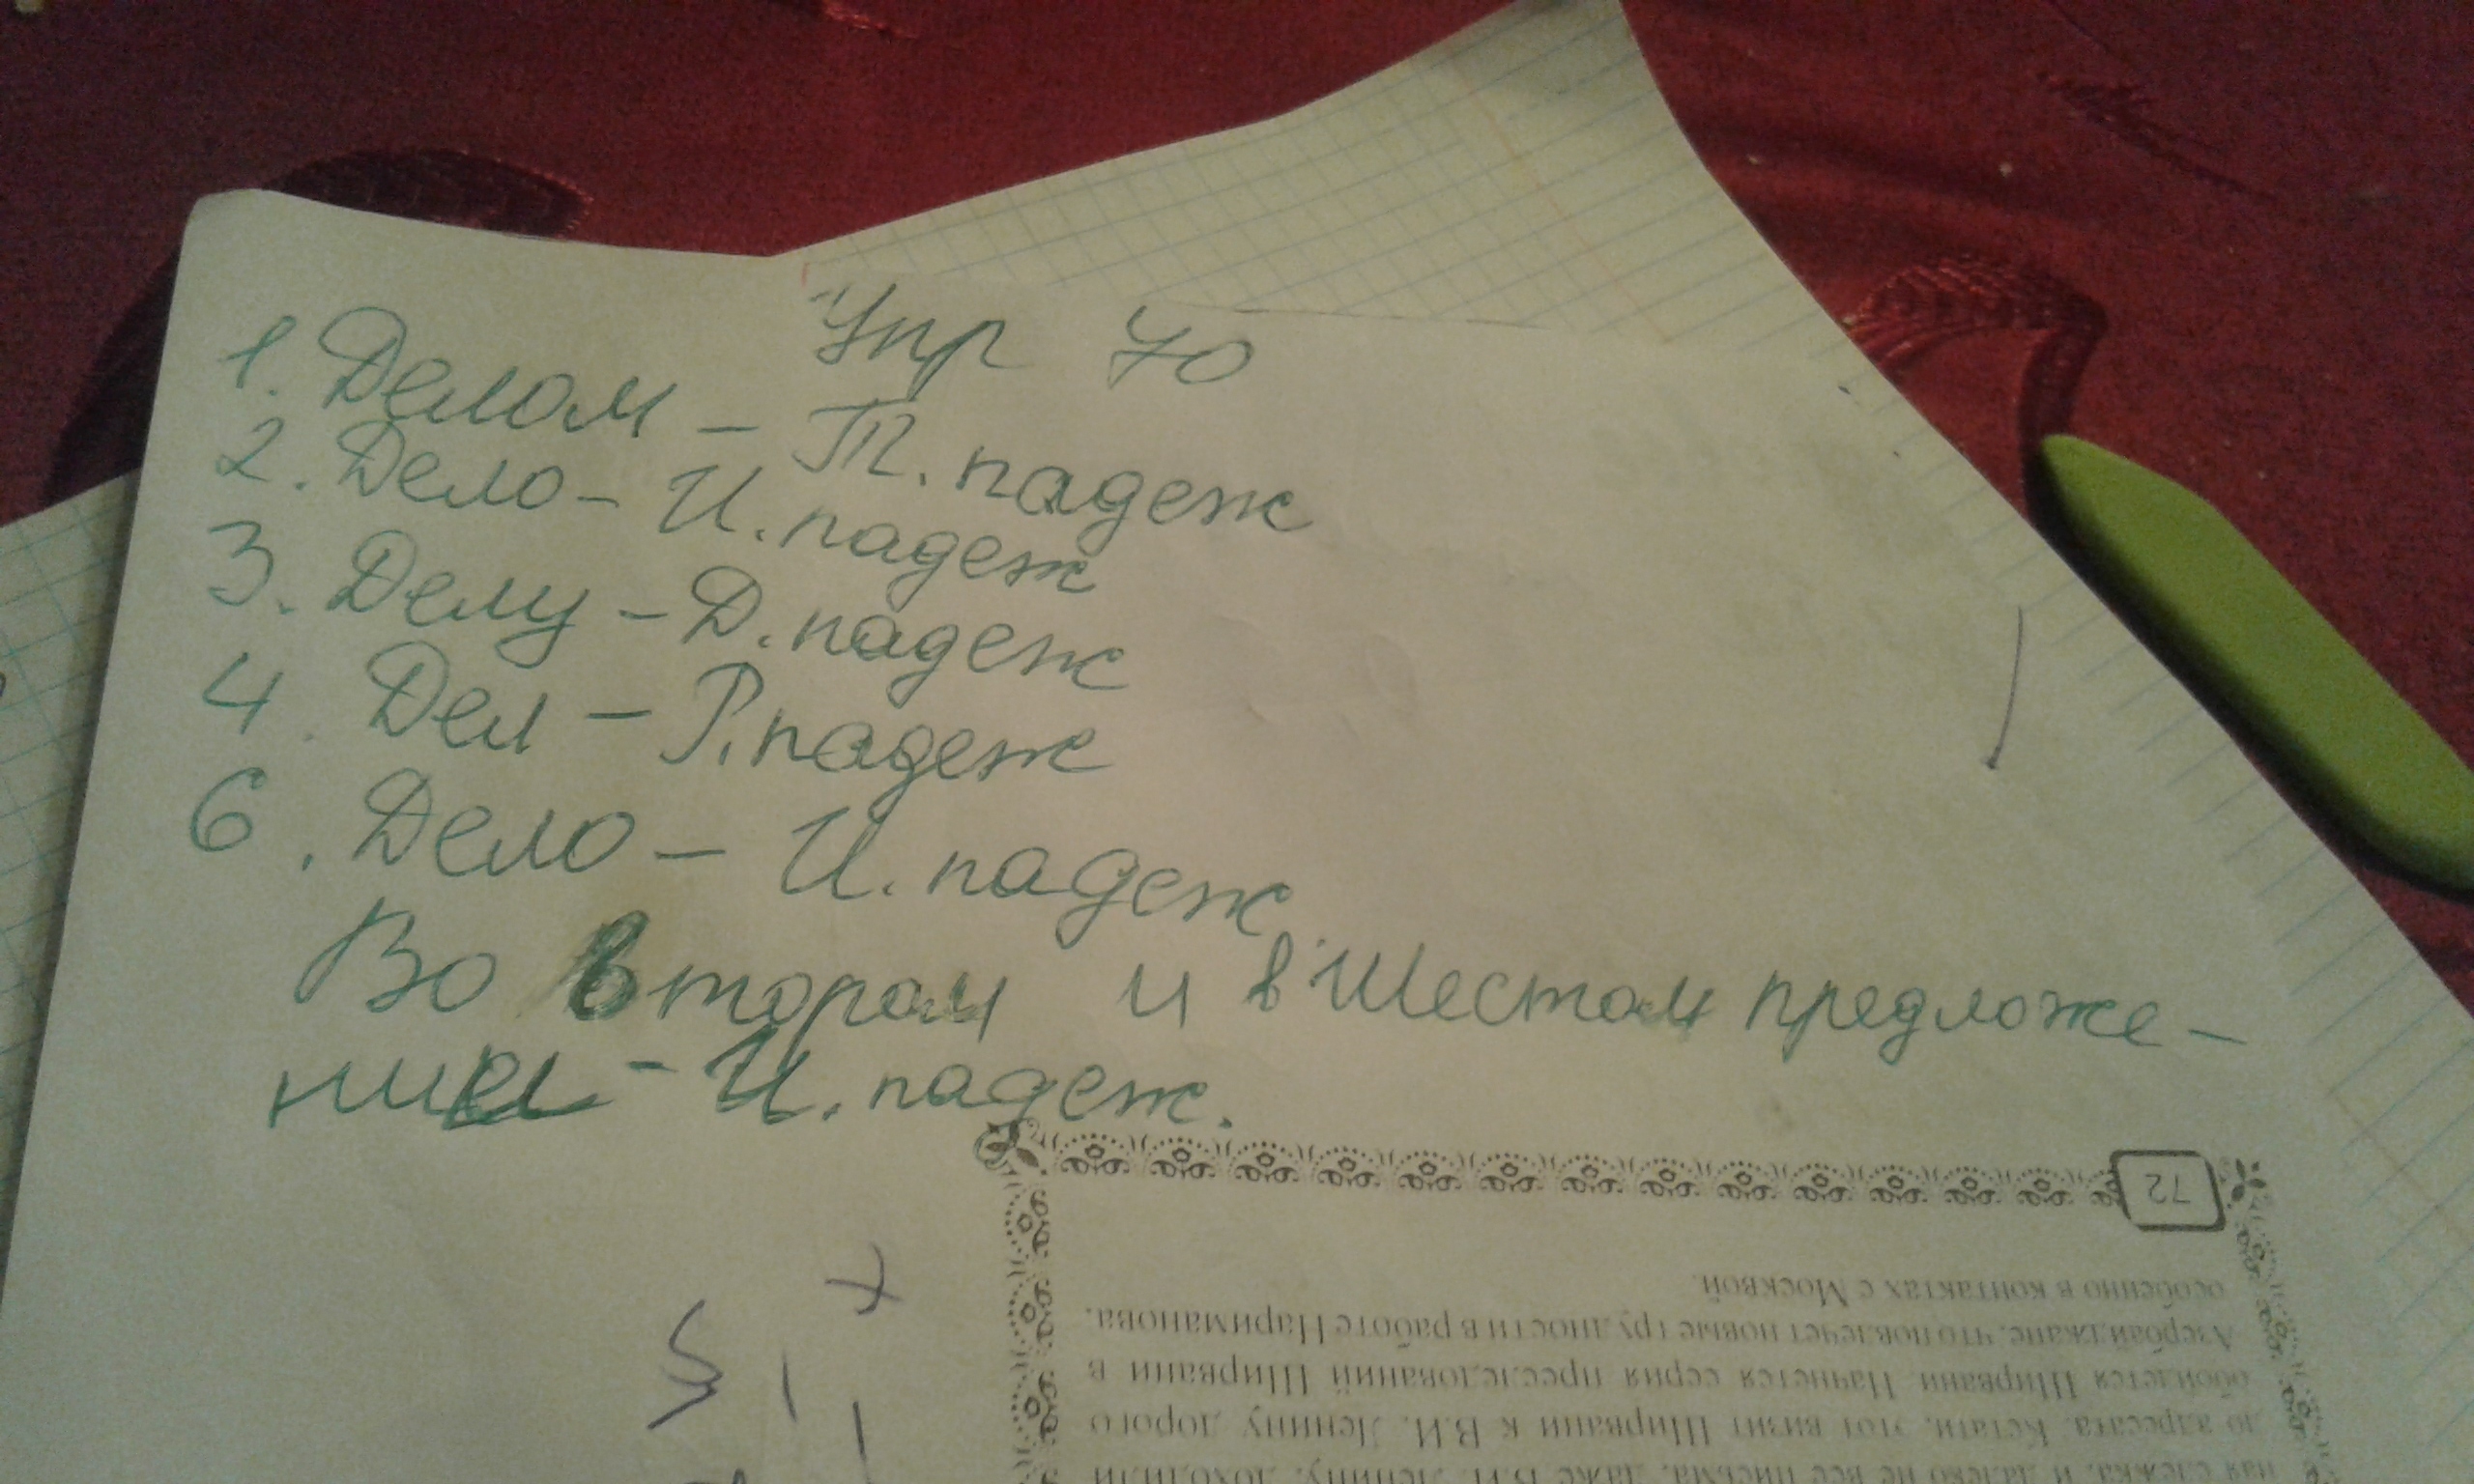 Упр 70
1. Делом - Т. падеж
2. Дело - И. падеж
3. Делу - Д. падеж
4. Дел - Р. падеж
6. Дело - И. падеж
Во втором и в шестом предложе-
нии - И. падеж.
72
особенно в контактах с Москвой.
Азербайджане, что повлечет новые трудности в работе Нариманова.
обойдется Ширвани. Начнется серия преследований Ширвани в
до адресата. Кстати, этот визит Ширвани к В.И. Ленину дорого
ная слежка, и далеко не все письма, даже В.И. Ленину, доходили